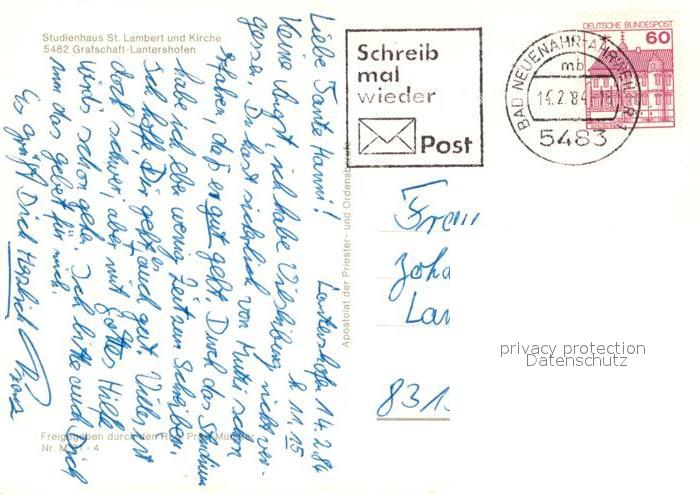 Studienhaus St. Lambert und Kirche
5482 Grafschaft-Lantershofen
Lantershofen 14.2.84
Liebe Tante Hanni!
Keine Angst, ich habe nicht ver-
gessen. Du hast sicherlich von Mutter schon
haben, daß er gut geht. Durch das Studium
habe ich eben wenig Zeit zum Schreiben.
Ich hoffe, Dir geht es auch gut. Vieles ist
doch schwer, aber mit Gottes Hilfe
wird's schon gehn. Ich bitte auch Dich
um das Gebet für mich.
Es grüßt Dich
Freigegeben durch den Reg. Präs. Münster
Nr.
Apostolat der Priester- und Ordensberufe
Schreib
mal
wieder
Post
DEUTSCHE BUNDESPOST
60
BAD NEUENAHR-AHRWEILER 1
mb
14.2.84
5483
Frau
Joha
Lan
831
privacy protection
Datenschutz